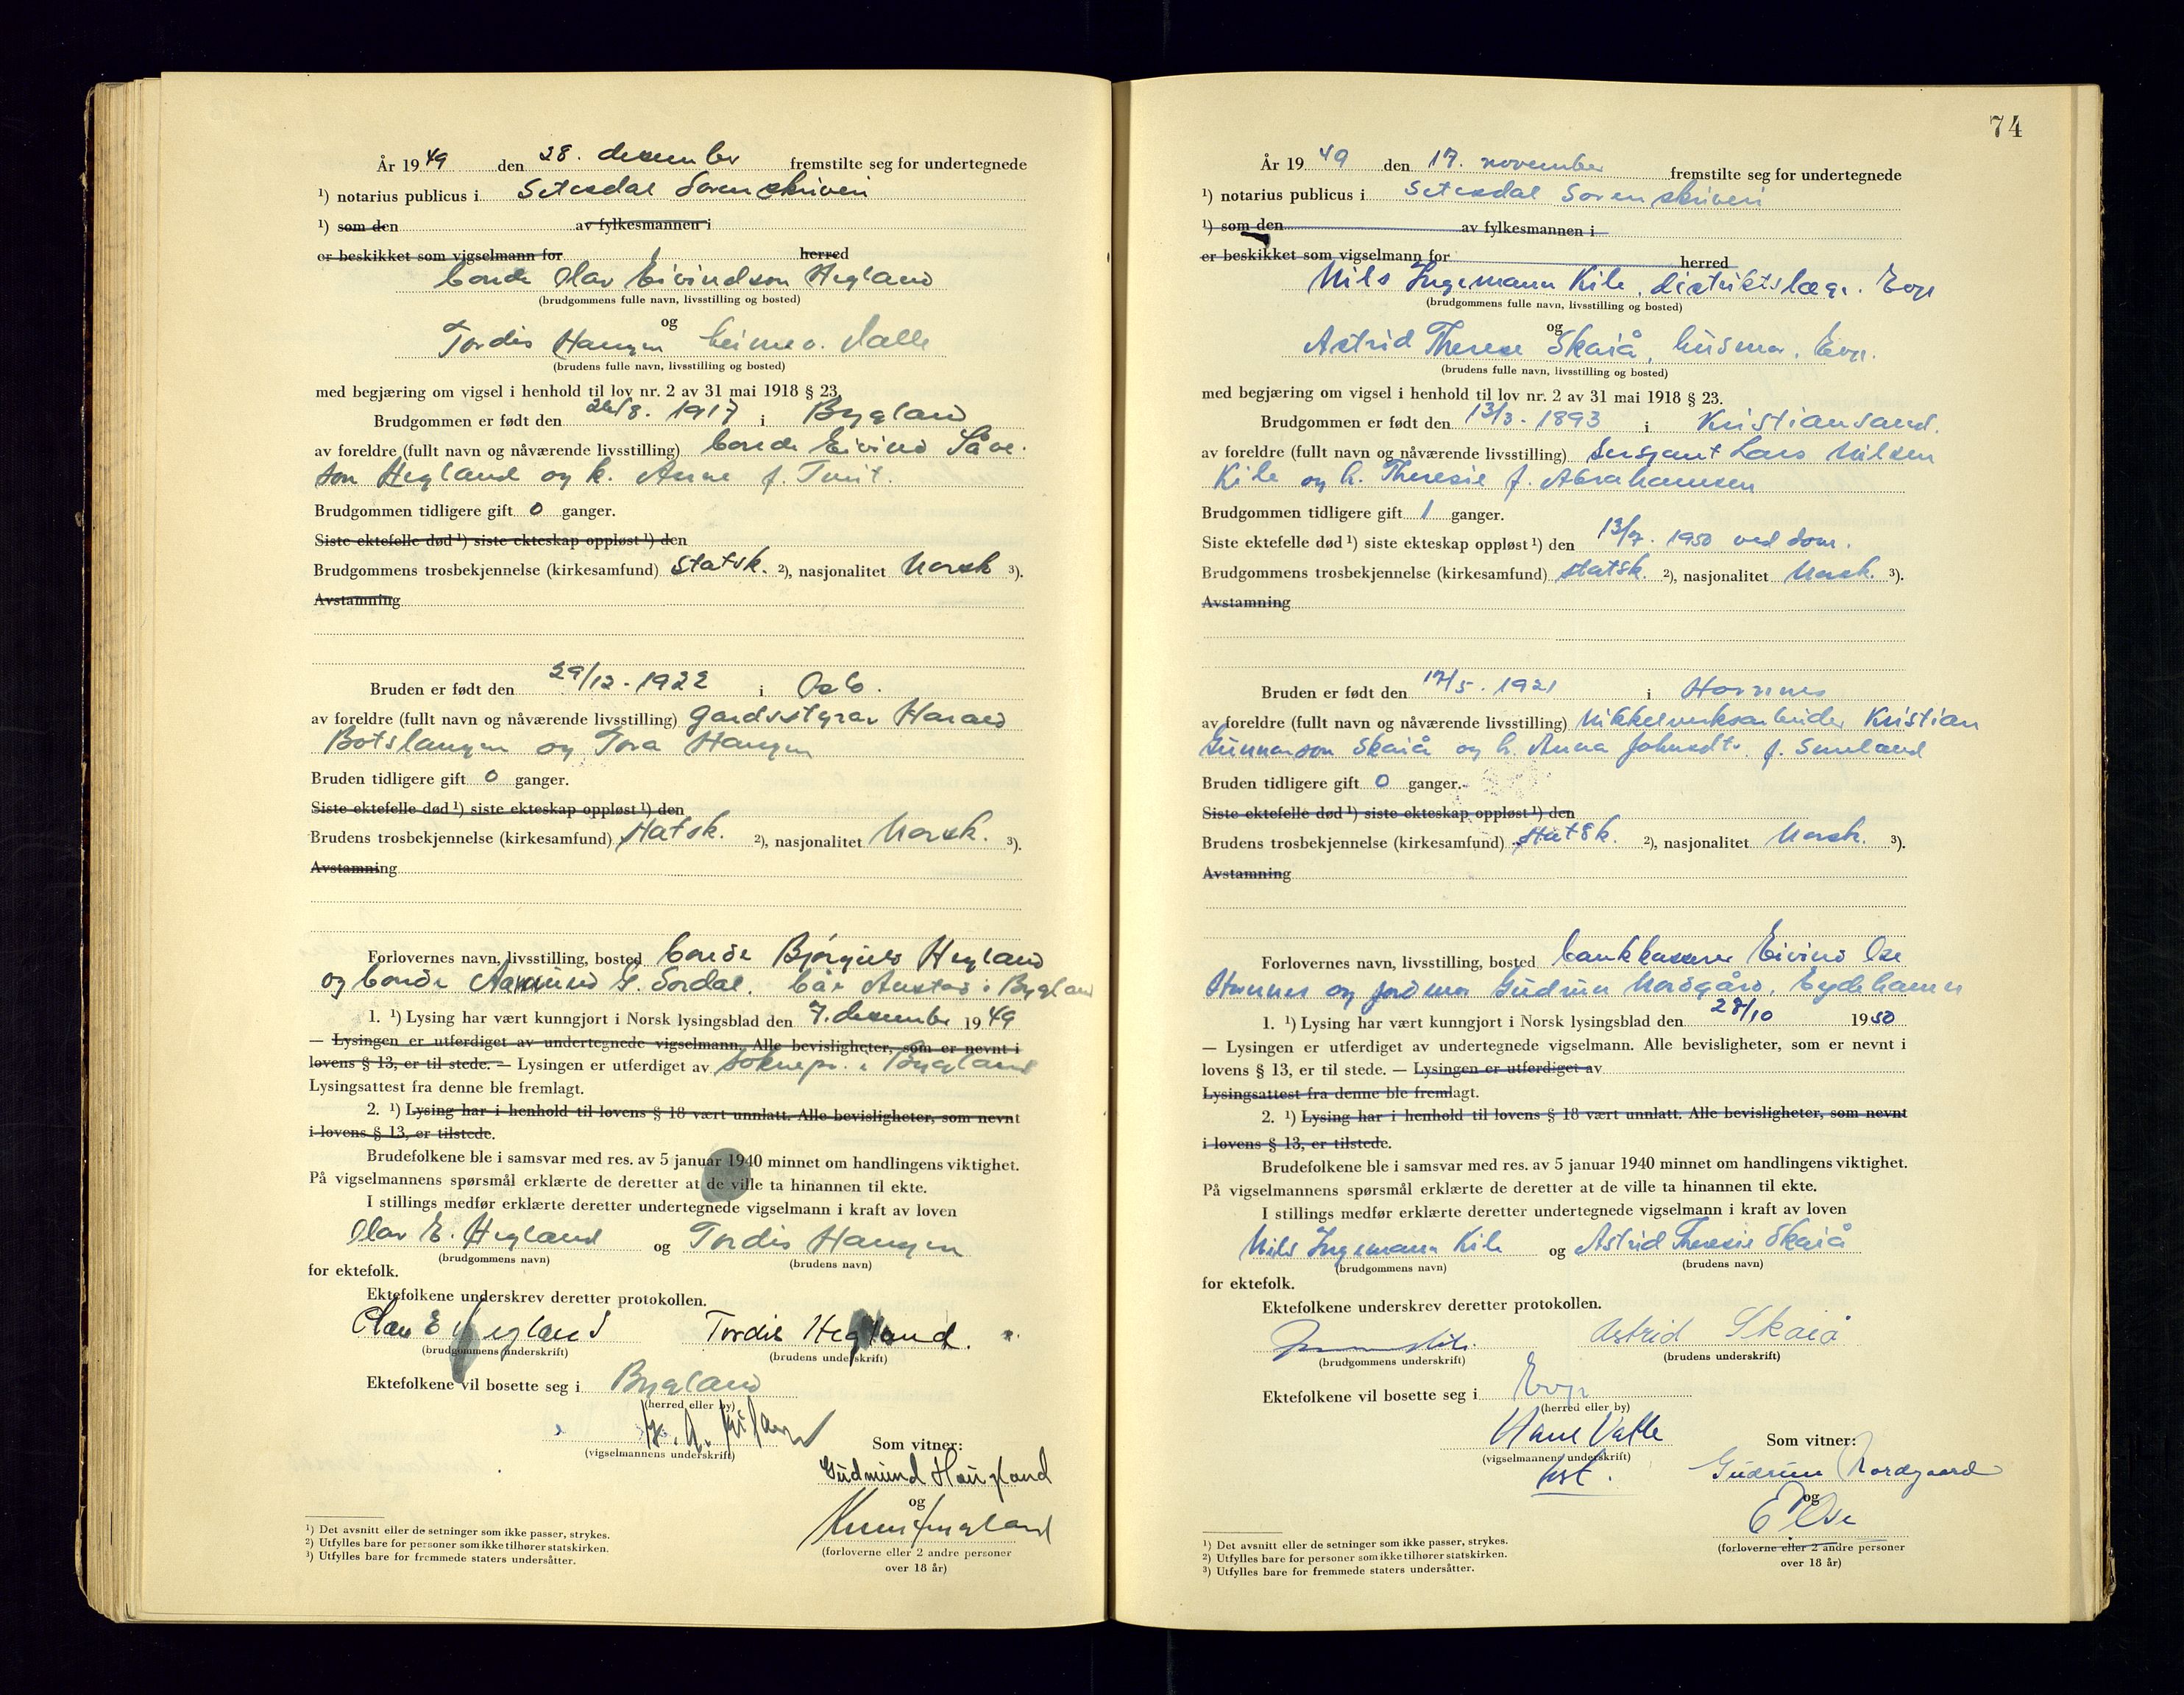 År 19 49 den 28. desember fremstilte seg for undertegnede
¹) notarius publicus i Setesdal Sorenskriveri
¹) som den av fylkesmannen i
er beskikket som vigselmann for herred
bonde Olav Eivindson Hegland
(brudgommens fulle navn, livsstilling og bosted)
og
Tordis Haugen heimev. Valle
(brudens fulle navn, livsstilling og bosted)
med begjæring om vigsel i henhold til lov nr. 2 av 31 mai 1918 § 23.
Brudgommen er født den /8. 1917 i Bygland
av foreldre (fullt navn og nåværende livsstilling) bonde Eivind Såve-
son Hegland og k. Anne f. Tveit.
Brudgommen tidligere gift 0 ganger.
Siste ektefelle død ¹) siste ekteskap oppløst ¹) den
Brudgommens trosbekjennelse (kirkesamfund) statsk. ²), nasjonalitet Norsk ³).
Avstamning
Bruden er født den 29/12 - 1922 i Oslo.
av foreldre (fullt navn og nåværende livsstilling) gardsstyrar Harald
Botslangen og Tora Haugen
Bruden tidligere gift 0 ganger.
Siste ektefelle død ¹) siste ekteskap oppløst ¹) den
Brudens trosbekjennelse (kirkesamfund) statsk. ²), nasjonalitet Norsk. ³).
Avstamning
Forlovernes navn, livsstilling, bosted bonde Bjørgulv Hegland
og bonde Aasmund G. Sordal. båe Austad i Bygland
1. ¹) Lysing har vært kunngjort i Norsk lysingsblad den 7. desember 19 49
— Lysingen er utferdiget av undertegnede vigselmann. Alle bevisligheter, som er nevnt i
lovens § 13, er til stede. — Lysingen er utferdiget av soknepr. i Bygland
Lysingsattest fra denne ble fremlagt.
2. ¹) Lysing har i henhold til lovens § 18 vært unnlatt. Alle bevisligheter, som nevnt
i lovens § 13, er tilstede.
Brudefolkene ble i samsvar med res. av 5 januar 1940 minnet om handlingens viktighet.
På vigselmannens spørsmål erklærte de deretter at de ville ta hinannen til ekte.
I stillings medfør erklærte deretter undertegnede vigselmann i kraft av loven
Olav E. Hegland og Tordis Haugen
(brudgommens navn) (brudens navn)
for ektefolk.
Ektefolkene underskrev deretter protokollen.
Olav E Hegland Tordis Hegland.
(brudgommens underskrift) (brudens underskrift)
Ektefolkene vil bosette seg i Bygland
(herred eller by)
(vigselmannens underskrift)
Som vitner:
Gudmund Haugland
og
(forloverne eller 2 andre personer
over 18 år)
¹) Det avsnitt eller de setninger som ikke passer, strykes.
²) Utfylles bare for personer som ikke tilhører statskirken.
³) Utfylles bare for fremmede staters undersåtter.
74
År 19 49 den 17. november fremstilte seg for undertegnede
¹) notarius publicus i Setesdal Sorenskriveri
¹) som den av fylkesmannen i
er beskikket som vigselmann for herred
Nils Ingemann Kile, distriktslæge. Evje
(brudgommens fulle navn, livsstilling og bosted)
og
Astrid Therese Skaiå, husmor, Evje.
(brudens fulle navn, livsstilling og bosted)
med begjæring om vigsel i henhold til lov nr. 2 av 31 mai 1918 § 23.
Brudgommen er født den 13/3 - 1893 i Kristiansand.
av foreldre (fullt navn og nåværende livsstilling) sersjant Lars Nilsen
Kile og h. Theresie f. Abrahamsen
Brudgommen tidligere gift 1 ganger.
Siste ektefelle død ¹) siste ekteskap oppløst ¹) den 13/9. 1950 ved dom.
Brudgommens trosbekjennelse (kirkesamfund) statsk. ²), nasjonalitet Norsk. ³).
Avstamning
Bruden er født den 17/5. 1921 i Hornnes
av foreldre (fullt navn og nåværende livsstilling) Nikkelverksarbeider Kristian
Gunnarson Skaiå og h. Anna Johnsdtr. f. Senland
Bruden tidligere gift 0 ganger.
Siste ektefelle død ¹) siste ekteskap oppløst ¹) den
Brudens trosbekjennelse (kirkesamfund) statsk. ²), nasjonalitet Norsk. ³).
Avstamning
Forlovernes navn, livsstilling, bosted bankkasserer Eivind Ose
Hornnes og jordmor Gudrun Nordgård, Eydehamn
1. ¹) Lysing har vært kunngjort i Norsk lysingsblad den 28/10 19 50
— Lysingen er utferdiget av undertegnede vigselmann. Alle bevisligheter, som er nevnt i
lovens § 13, er til stede. — Lysingen er utferdiget av
Lysingsattest fra denne ble fremlagt.
2. ¹) Lysing har i henhold til lovens § 18 vært unnlatt. Alle bevisligheter, som nevnt
i lovens § 13, er tilstede.
Brudefolkene ble i samsvar med res. av 5 januar 1940 minnet om handlingens viktighet.
På vigselmannens spørsmål erklærte de deretter at de ville ta hinannen til ekte.
I stillings medfør erklærte deretter undertegnede vigselmann i kraft av loven
Nils Ingemann Kile og Astrid Theresie Skaiå
(brudgommens navn) (brudens navn)
for ektefolk.
Ektefolkene underskrev deretter protokollen.
Astrid Skaiå
(brudgommens underskrift) (brudens underskrift)
Ektefolkene vil bosette seg i Evje
(herred eller by)
Hans Valle
(vigselmannens underskrift)
kst.
Som vitner:
Gudrun Nordgaard
og
E. Ose
(forloverne eller 2 andre personer
over 18 år)
¹) Det avsnitt eller de setninger som ikke passer, strykes.
²) Utfylles bare for personer som ikke tilhører statskirken.
³) Utfylles bare for fremmede staters undersåtter.